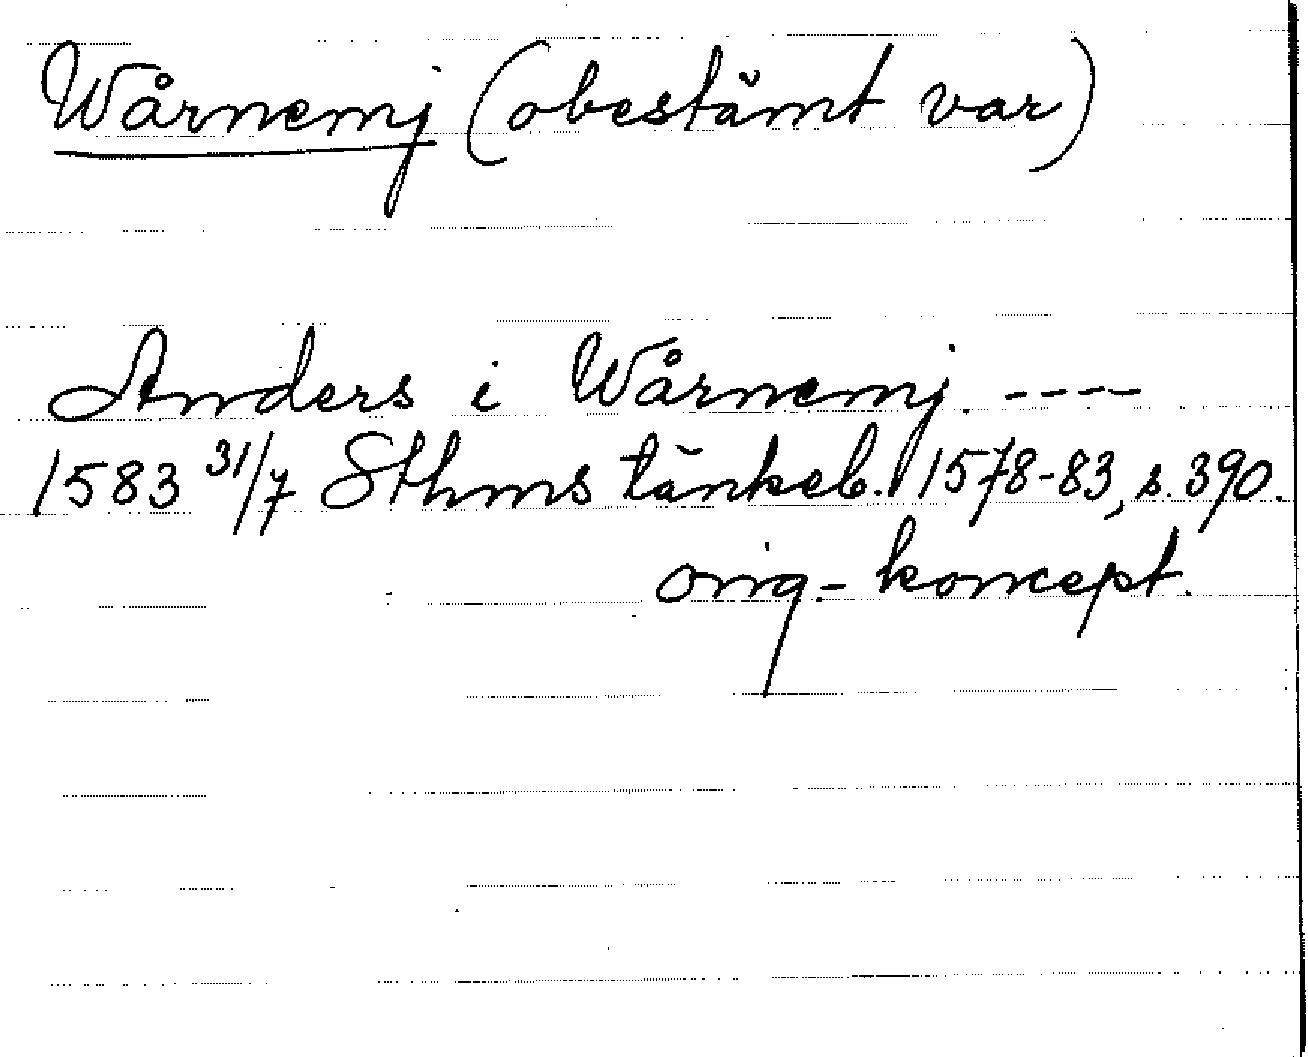 Wårnemj (obestämt var)
Anders i Wårnemj. ----
1583 31/7 Sthms tänkeb. 1578-83, s. 390.
orig.-koncept.